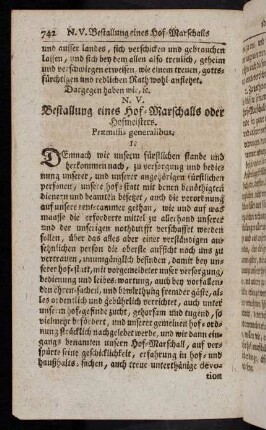 742 N. V. Bestallung eines Hof-Marschalls
und ausser landes, sich verschicken und gebrauchen
lassen, und sich bey dem allen also treulich, geheim
und verschwiegen erweisen, wie einem treuen, gotts-
fürchtigen und redlichen Rath wohl anstehet.
Dargegen haben wir, ꝛc.
N. V.
Bestallung eines Hof-Marschalls oder
Hofmeisters.
Præmissis generalibus.
DEmnach wie unserm fürstlichen stande und
herkommen nach, zu versorgung und bedie-
nung unserer, und unserer angehörigen fürstlichen
personen, unsere hof-statt mit denen benöthigten
dienern und beamten besetzet, auch die verordnung
auf unsere rentcammer gethan, wie und auf was
maasse die erforderte mittel zu allerhand unserer
und der unserigen nothdurfft verschaffet werden
sollen, über das alles aber einer verständigen an-
sehnlichen person die oberste aufsicht noch uns zu
vertrauen, unumgänglich befinden, damit bey un-
serer hof-statt, mit vorgemeldeter unser versorgung,
bedienung und leibes-wartung, auch bey vorfallen-
den ehren-sachen, und bewirthung fremder gäste, al-
les ordentlich und gebührlich verrichtet, auch unter
unserm hof-gesinde zucht, gehorsam und tugend, so
vielmehr befördert, und unserer gemeinen hof-ord-
nung stracklich nachgelebet werde, und wir dann ein-
gangs benannten unsern Hof-Marschall, auf ver-
spürte seine geschicklichkeit, erfahrung in hof- und
haußhalts-sachen, auch treue unterthänige devo-
tion